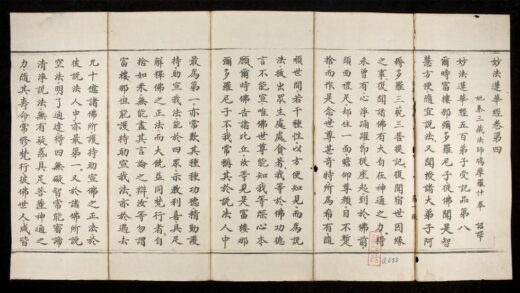 妙法蓮華經卷第四
姚秦三藏法師鳩摩羅什奉 詔譯
妙法蓮華經五百弟子受記品第八
爾時富樓那彌多羅尼子從佛聞是智
慧方便隨宜說法又聞授諸大弟子阿
耨多羅三藐三菩提記復聞宿世因緣
之事復聞諸佛有大自在神通之力得
未曾有心淨踊躍即從座起到於佛前
頭面禮足却住一面瞻仰尊顏目不暫
捨而作是念世尊甚奇特所為希有隨
順世間若干種性以方便知見而為說
法拔出眾生處處貪著我等於佛功德
言不能宣唯佛世尊能知我等深心本
願爾時佛告諸比丘汝等見是富樓那
彌多羅尼子不我常稱其於說法人中
最為第一亦常歎其種種功德精勤護
持助宣我法能於四眾示教利喜具足
解釋佛之正法而大饒益同梵行者自
捨如來無能盡其言論之辯汝等勿謂
富樓那但能護持助宣我法亦於過去
九十億諸佛所護持助宣佛之正法於
彼說法人中亦最第一又於諸佛所說
空法明了通達得四無礙智常能審諦
清淨說法無有疑惑具足菩薩神通之
力隨其壽命常修梵行彼佛世人咸皆